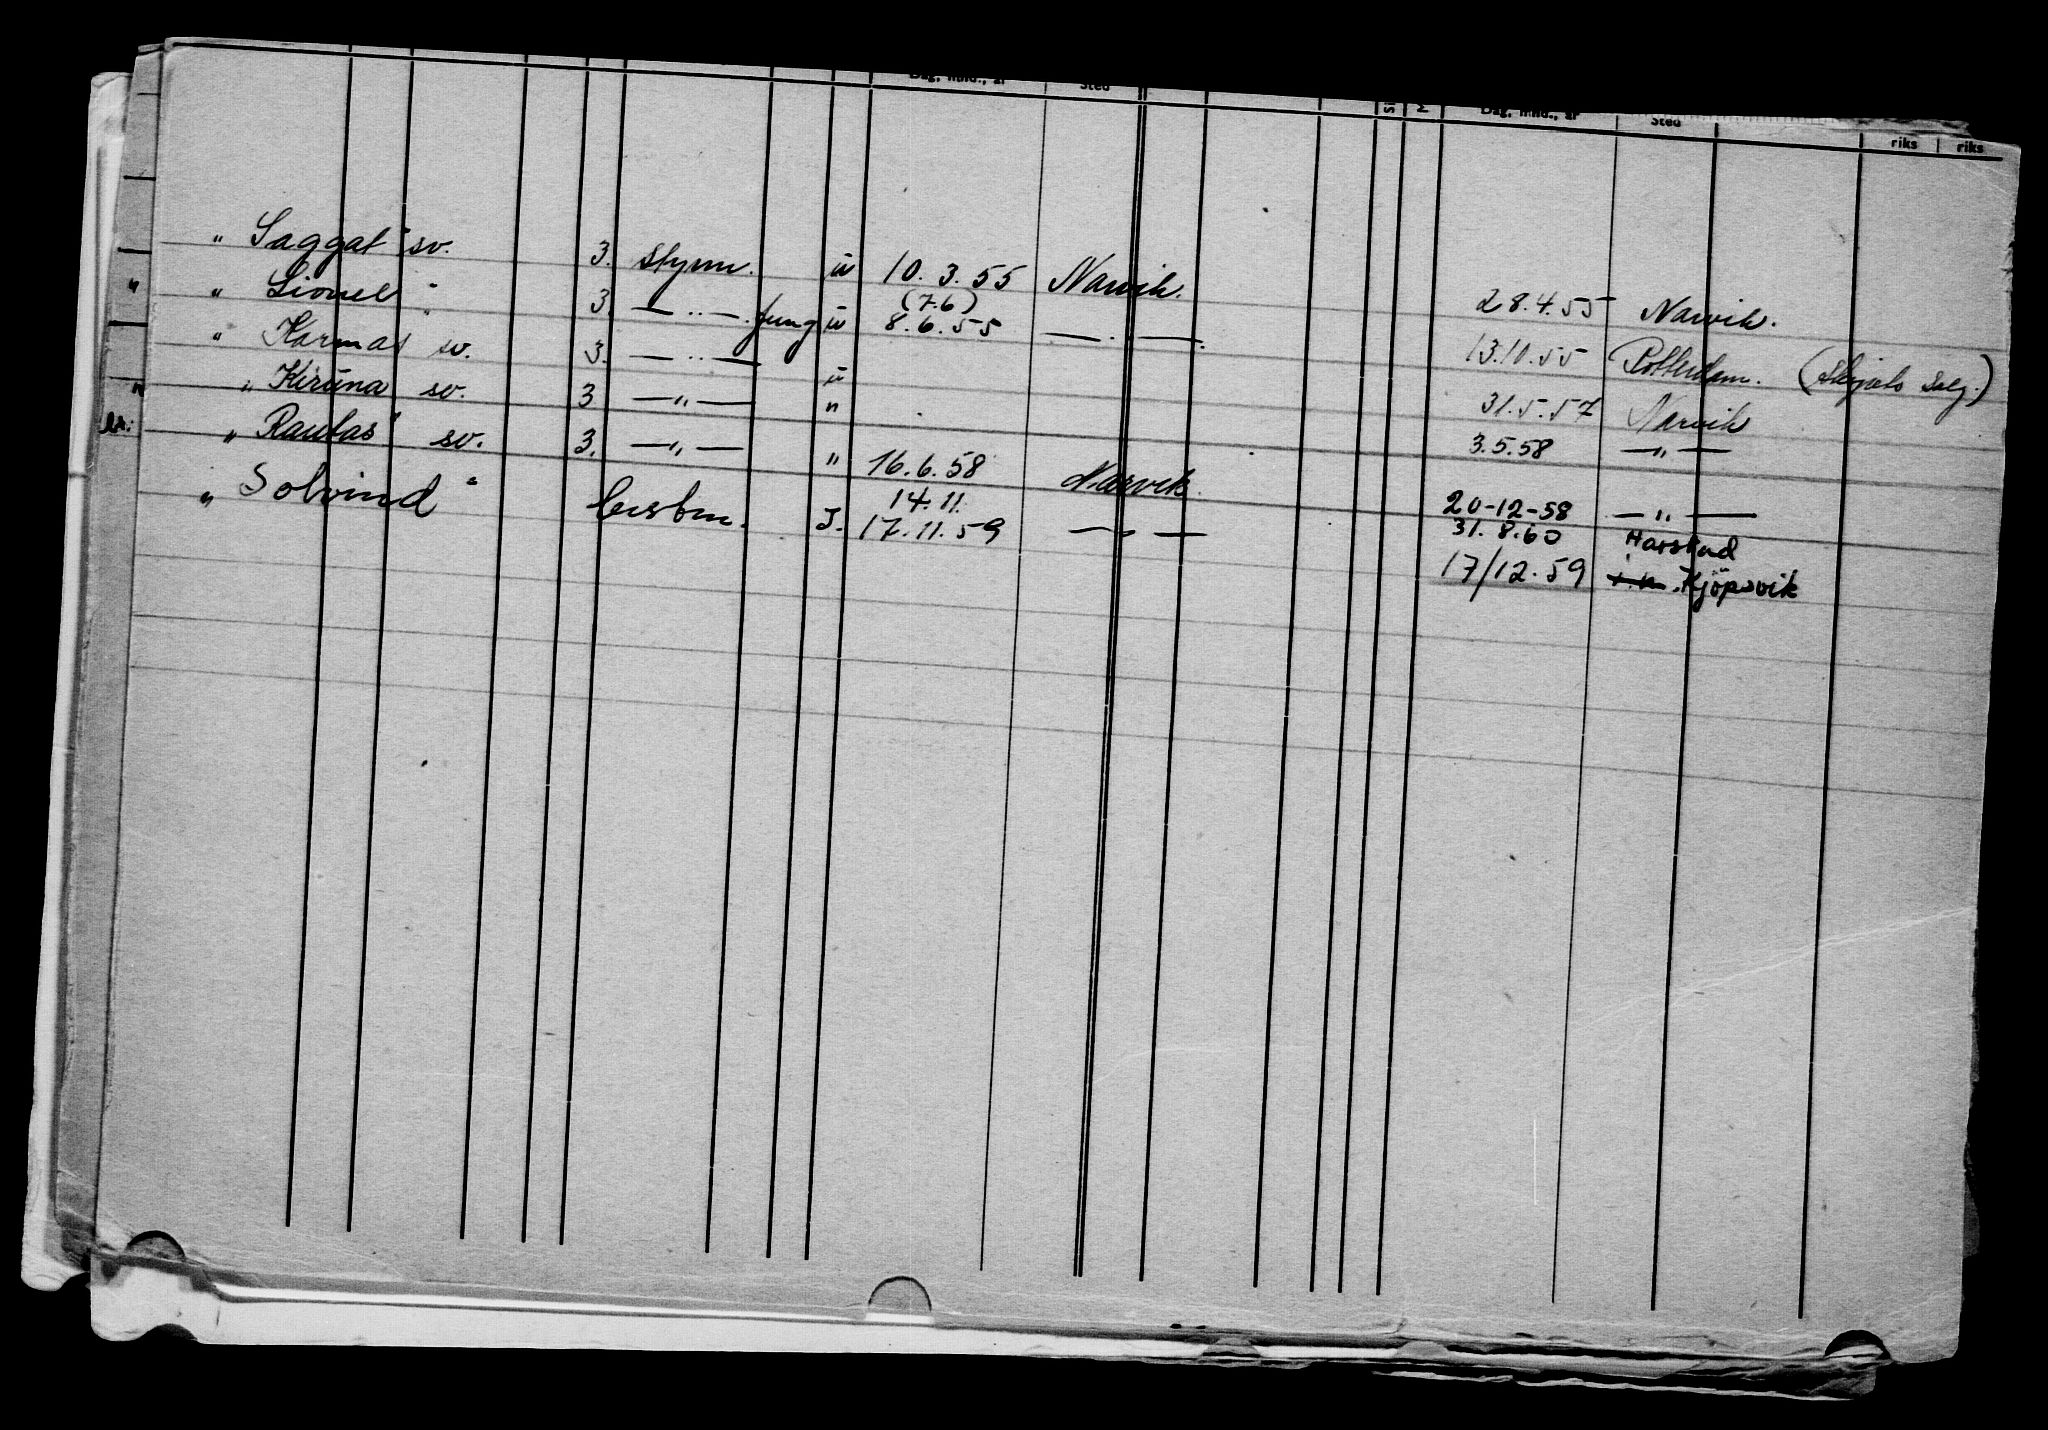 Dag, mnd., år Sted Dag, mnd., år Sted riks riks
" Saggat" sv. 3. styrm. u 10. 3. 55 Narvik. 28.4.55 Narvik.
" Lionel " " 3. — " — . fung u (7.6) 8.6.55 — " — . 13.10.55 Rotterdam. (Skipets salg.)
" Karmas sv. 3. — " — u 31.5.57 Narvik
" Kiruna sv. 3 — " — " 3.5.58 — " —
" Rautas" sv. 3. — " — " 16.6.58 Narvik. 20-12-58 — " —
" Solvind " J. 14.11. 31.8.60 Harstad
17.11.59 — " — 17/12.59 Kjöpsvik